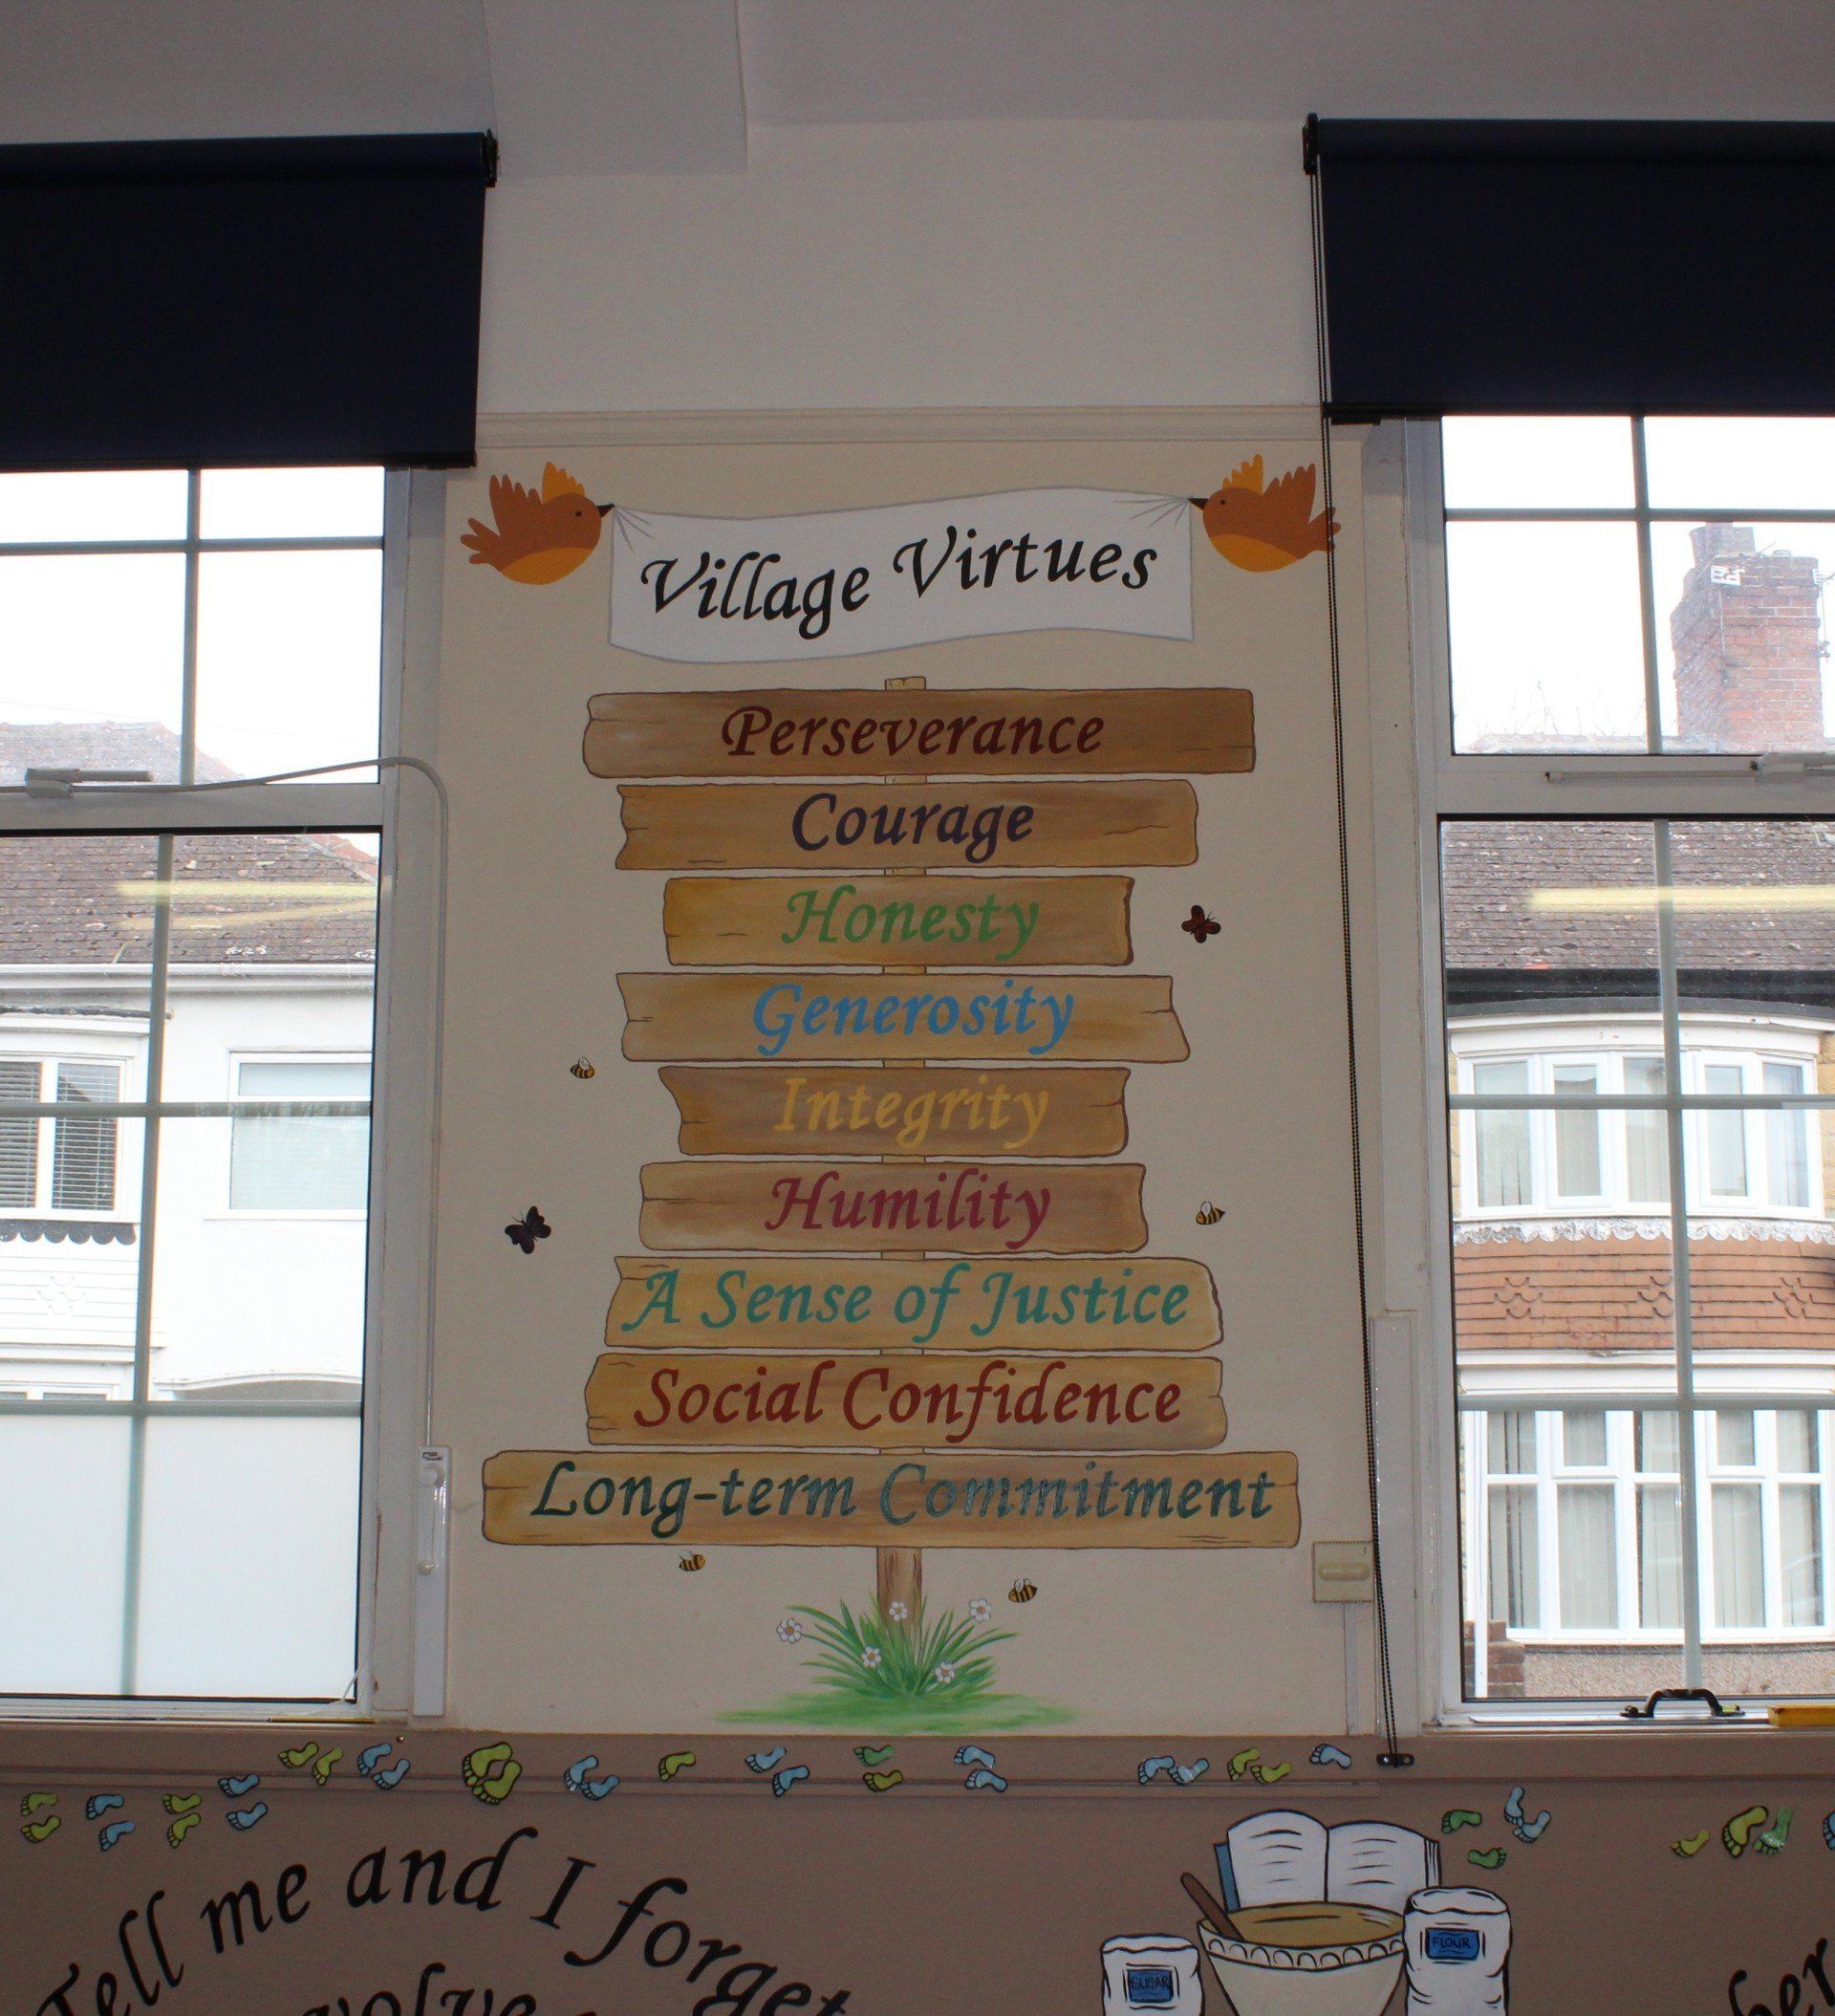 Village Virtues
Perseverance
Courage
Honesty
Generosity
Integrity
Humility
A Sense of Justice
Social Confidence
Long-term Commitment
Tell me and I forget
SUGAR
FLOUR